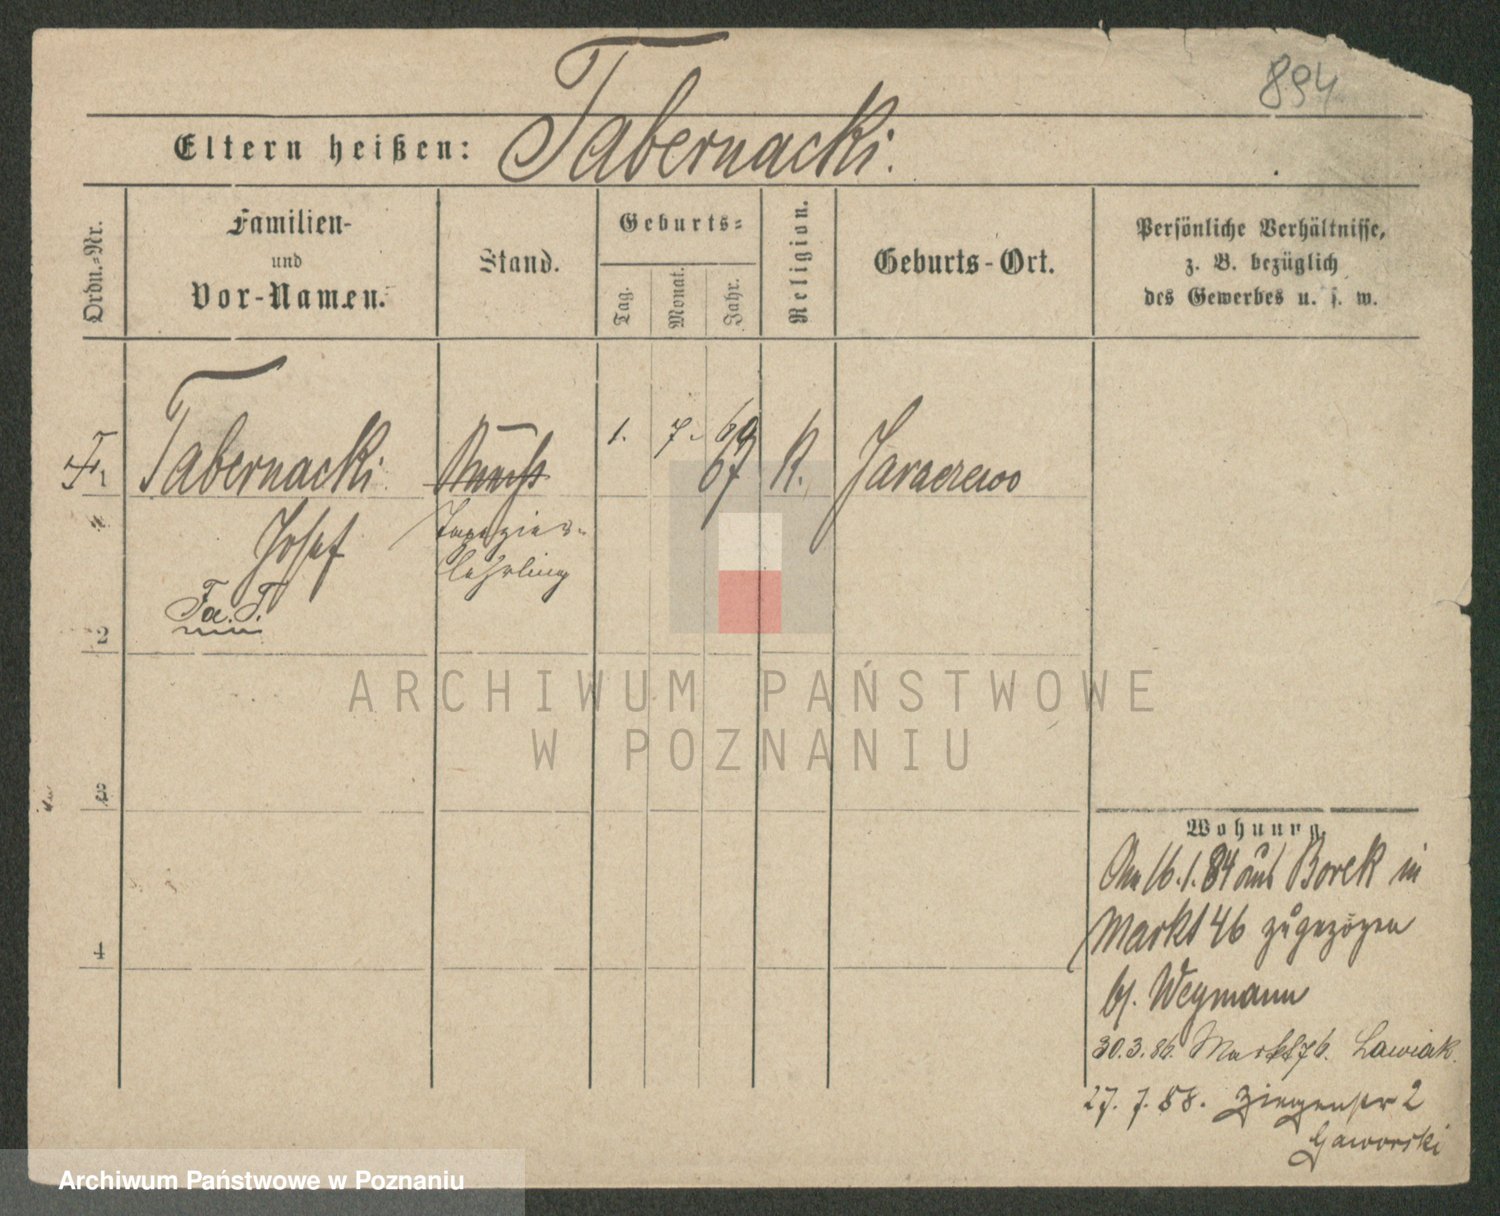 894
Eltern heißen: Tabernacki.
Ordn.-Nr.
Familien-
und
Vor-Namen.
Stand.
Geburts-
Tag.
Monat.
Jahr.
Religion.
Geburts-Ort.
Persönliche Verhältnisse,
z. B. bezüglich
des Gewerbes u. s. w.
Tabernacki
1. 7. 69
67
K.
Jaraczewo
Josef
Tapezier-
lehrling
Fa. T.
2
3
4
ARCHIWUM PAŃSTWOWE
W POZNANIU
Wohnung.
Am 16.1.84 aus Borek in
Markt 46 zugezogen
bj. Weymann
30.3.86. Markt 76. Lawiak.
27. 7. 88. Ziegenstr 2
Gaworski
Archiwum Państwowe w Poznaniu